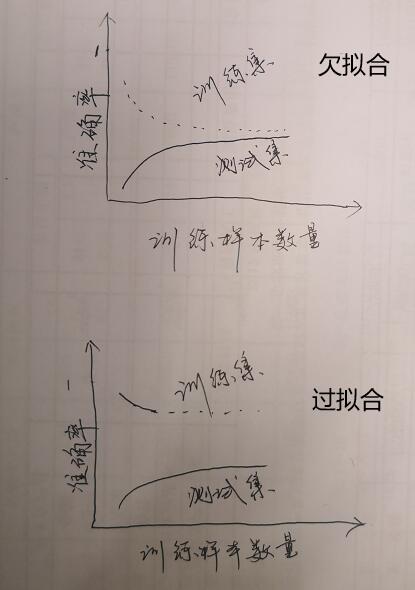 训练集
欠拟合
准确率
测试集
训练样本数量
训练集
过拟合
准确率
测试集
训练样本数量